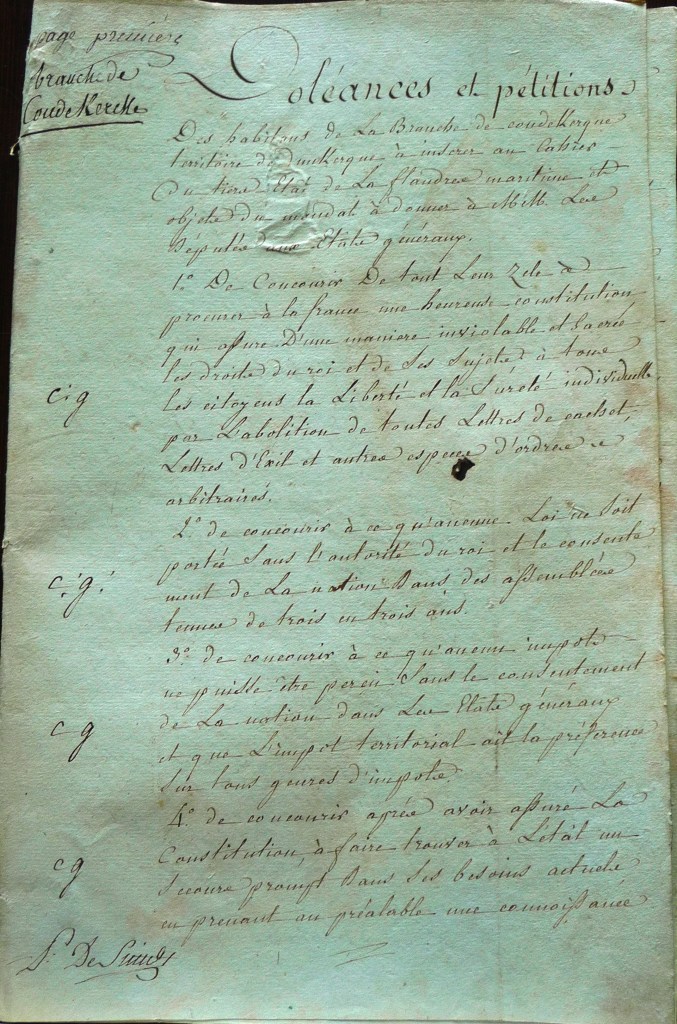 page première
brauche de
CoudeKercKe
Doléances et pétitions
Des habitans de La Branche de coudeKerque
territoire de DuncKerque à inserer au Cahier
Du tiers Etat de La flandre maritime et
objets du mandat à donner à M.M. Les
Députés aux Etats généraux.
1º De Concourir De tout Leur Zele à
procurer à la france une heureuse constitution
qui assure D'une maniere inviolable et Sacrée
les droits du roi et de Ses Sujets à tous
c.g
les citoyens la Liberté et la Sûreté individuelle
par L'abolition de toutes Lettres de cachet,
Lettres d'Exil et autres especes d'ordres
arbitraires.
2º de concourir à ce qu'aucune Loi ne Soit
portée Sans l'autorité du roi et le consente
c.g.
ment de La nation Dans des assemblées
tenues de trois en trois ans.
3º de concourir à ce qu'aucun impots
ne puisse être percu Sans le consentement
c g
de La nation dans Les Etats généraux
et que L'impot territorial ait la préférence
Sur tous genres d'impots.
4º de concourir après avoir assuré La
c g
Constitution, à faire trouver à Letat un
Secours prompt Dans Ses besoins actuels
en prenant au préalable une connoissance